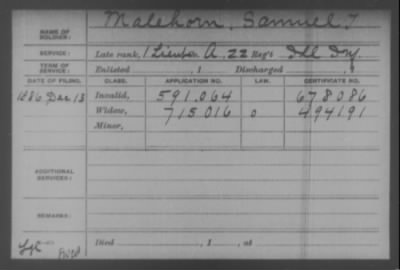 NAME OF SOLDIER: Malehorn, Samuel T
SERVICE: Late rank, 1 Lieut Co. A, 22 Reg't Ill Inf
TERM OF SERVICE: Enlisted , 1 Discharged , 1
DATE OF FILING. CLASS. APPLICATION NO. LAW. CERTIFICATE NO.
1886 Dec 13 Invalid, 591.064 678086
Widow, 715.016 0 494191
Minor,
ADDITIONAL SERVICES:
REMARKS:
Died , 1 , at